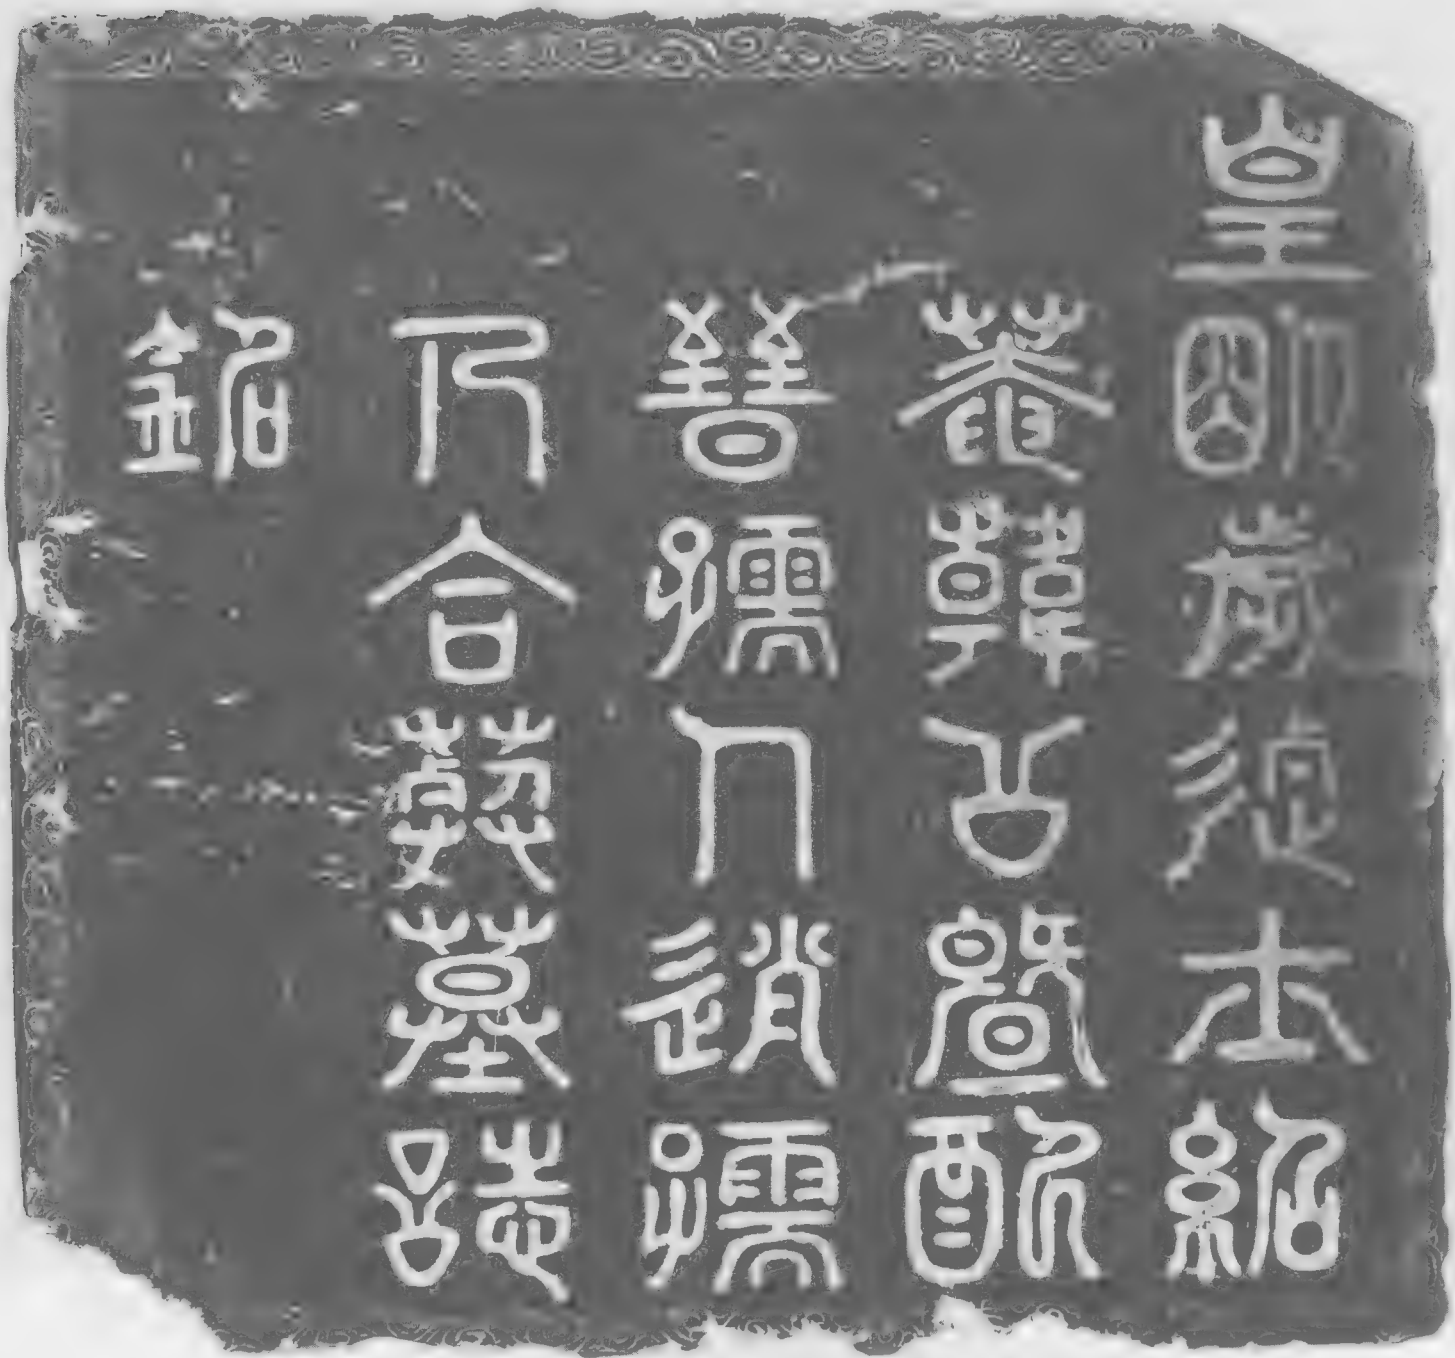 皇明歲進士紹
菴韓公暨配
晉孺人趙孺
人合葬墓誌
銘